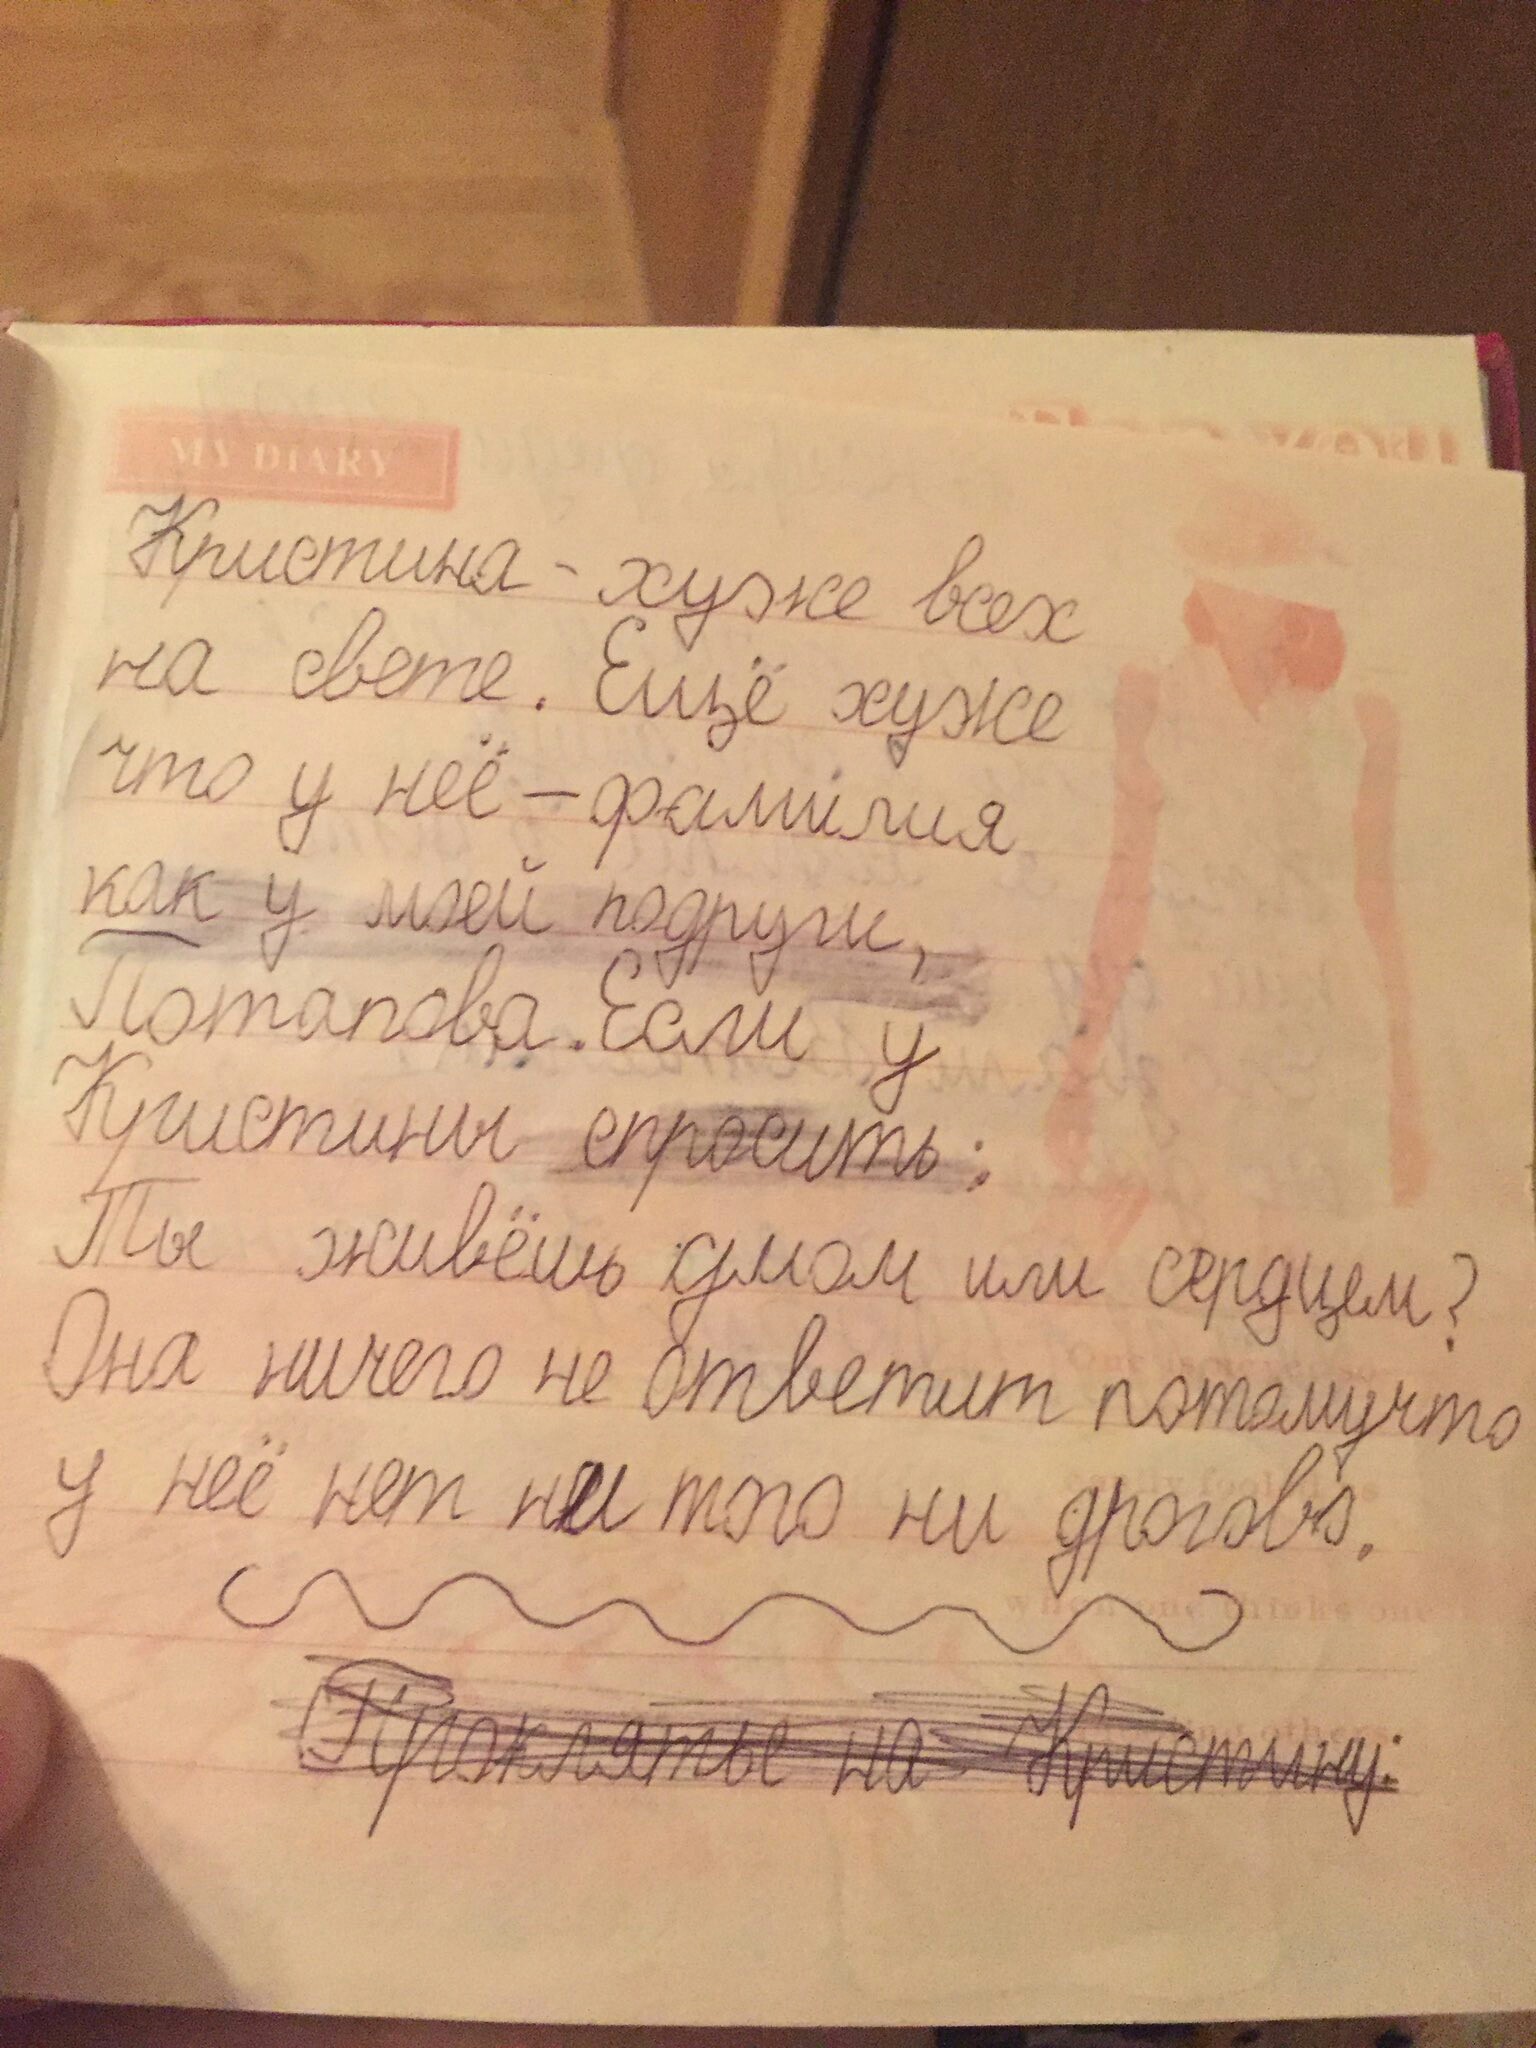 MY DIARY
Кристина - хуже всех
на свете. Ещё хуже
что у неё - фамилия
как у моей подруги,
Потапова. Если у
Кристины спросить:
Ты живёшь умом или сердцем?
Она ничего не ответит потомучто
у неё нет ни того ни дрогова.
when one thinks one
Проклятье на Кристину: